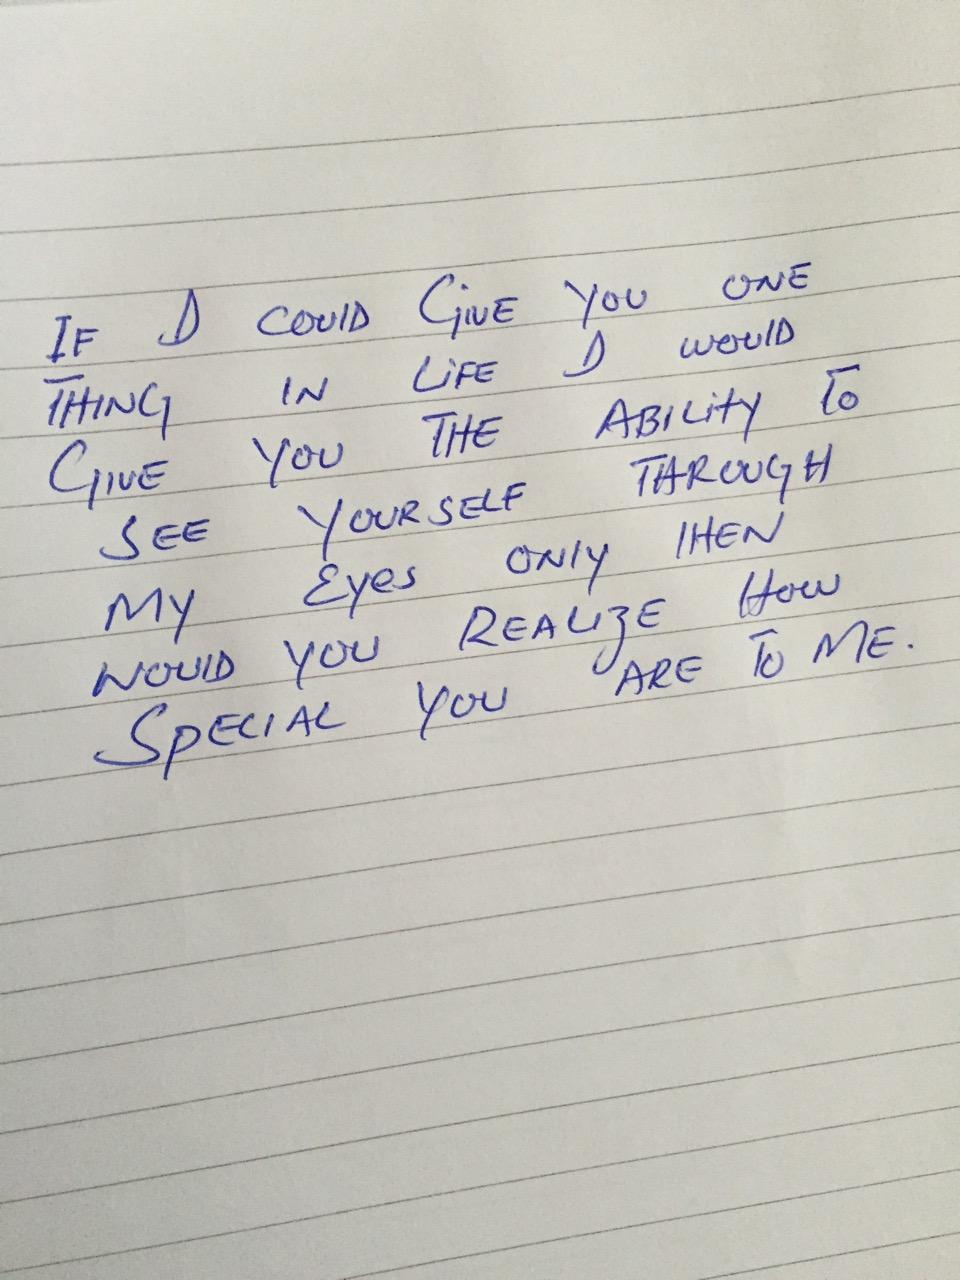 IF I COULD GIVE YOU ONE
THING IN LIFE I WOULD
GIVE YOU THE ABILITY TO
SEE YOURSELF THROUGH
MY EYES ONLY THEN
WOULD YOU REALIZE HOW
SPECIAL YOU ARE TO ME.